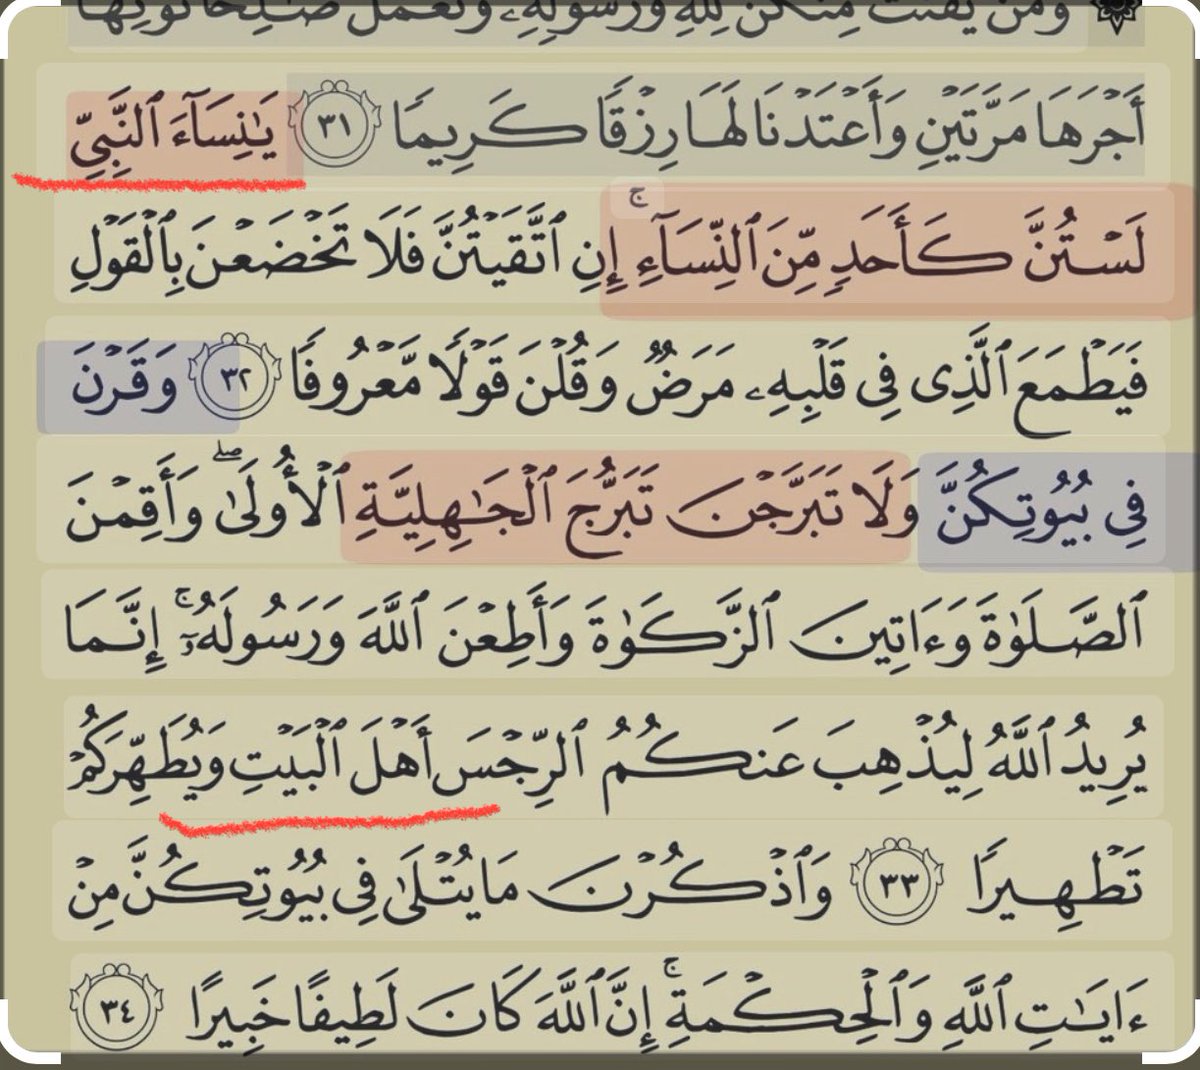 وَمَن يَقْنُتْ مِنكُنَّ لِلَّهِ وَرَسُولِهِۦ وَتَعْمَلْ صَٰلِحًا نُّؤْتِهَآ
أَجْرَهَا مَرَّتَيْنِ وَأَعْتَدْنَا لَهَا رِزْقًا كَرِيمًا ٣١ يَٰنِسَآءَ ٱلنَّبِيِّ
لَسْتُنَّ كَأَحَدٍ مِّنَ ٱلنِّسَآءِ ۚ إِنِ ٱتَّقَيْتُنَّ فَلَا تَخْضَعْنَ بِٱلْقَوْلِ
فَيَطْمَعَ ٱلَّذِى فِى قَلْبِهِۦ مَرَضٌ وَقُلْنَ قَوْلًا مَّعْرُوفًا ٣٢ وَقَرْنَ
فِى بُيُوتِكُنَّ وَلَا تَبَرَّجْنَ تَبَرُّجَ ٱلْجَٰهِلِيَّةِ ٱلْأُولَىٰ ۖ وَأَقِمْنَ
ٱلصَّلَوٰةَ وَءَاتِينَ ٱلزَّكَوٰةَ وَأَطِعْنَ ٱللَّهَ وَرَسُولَهُۥٓ ۚ إِنَّمَا
يُرِيدُ ٱللَّهُ لِيُذْهِبَ عَنكُمُ ٱلرِّجْسَ أَهْلَ ٱلْبَيْتِ وَيُطَهِّرَكُمْ
تَطْهِيرًا ٣٣ وَٱذْكُرْنَ مَا يُتْلَىٰ فِى بُيُوتِكُنَّ مِنْ
ءَايَٰتِ ٱللَّهِ وَٱلْحِكْمَةِ ۚ إِنَّ ٱللَّهَ كَانَ لَطِيفًا خَبِيرًا ٣٤